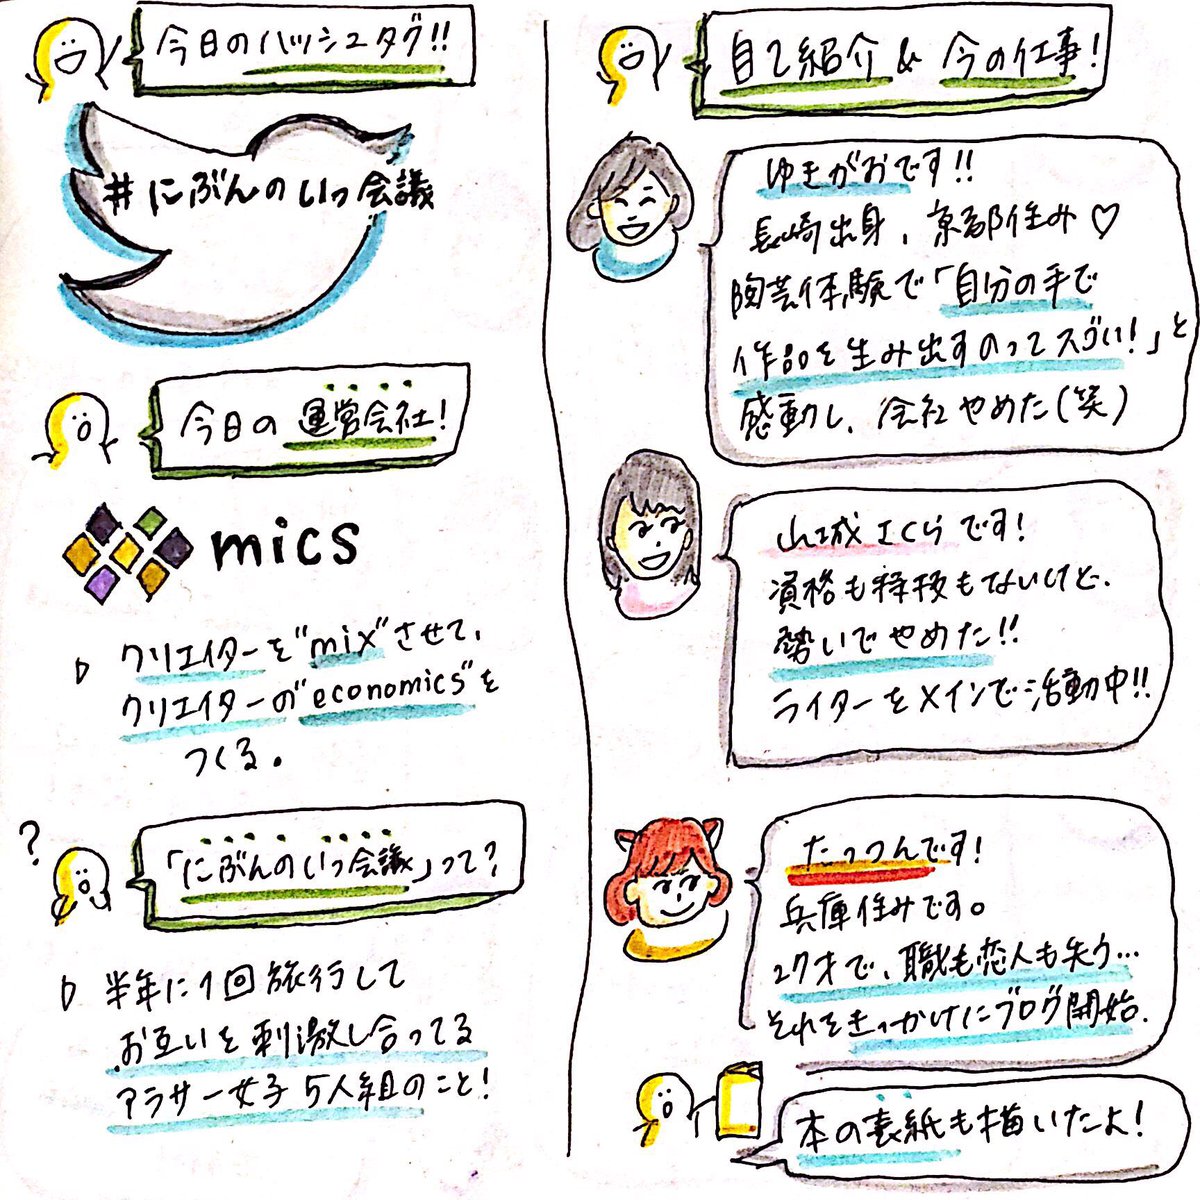 今日のハッシュタグ!!
#にぶんのいっ会議
今日の運営会社!
mics
クリエイターを"mix"させて、
クリエイターの"economics"を
つくる。
?
「にぶんのいっ会議」って?
半年に1回旅行して
お互いを刺激し合ってる
アラサー女子5人組のこと!
自己紹介&今の仕事!
ゆきがおです!!
長崎出身、京都住み♡
陶芸体験で「自分の手で
作品を生み出すのってスゴい!」と
感動し、会社やめた(笑)
山城さくらです!
資格も特技もないけど、
勢いでやめた!!
ライターをメインで活動中!!
たっつんです!
兵庫住みです。
27才で、職も恋人も失う…
それをきっかけにブログ開始.
本の表紙も描いたよ!